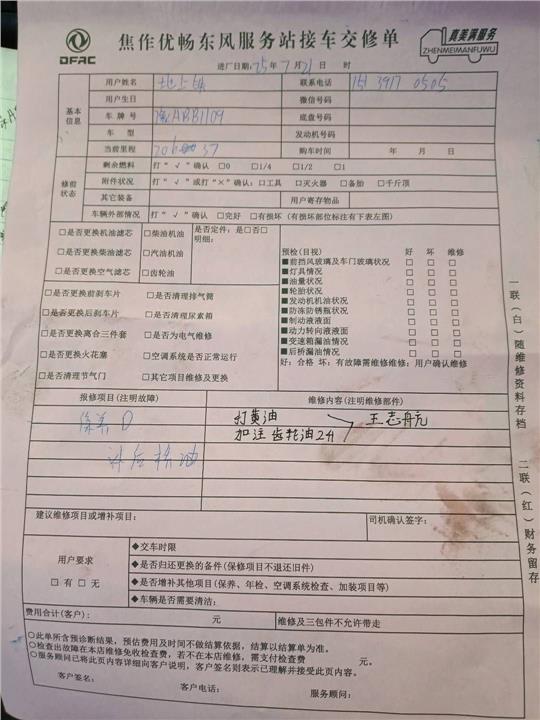 DFAC
焦作优畅东风服务站接车交修单
真美满服务
ZHENMEIMANFUWU
进厂日期：25年7月21日 时
基本信息
用户姓名 联系电话 151 3917 0505
用户生日 微信号码
车牌号 豫ABB1109 底盘号码
车型 发动机号码
当前里程 购车时间 年 月 日
修前状态
剩余燃料 打“√”确认 □0 □1/4 □1/2 □1
附件状况 打“√”或打“×”确认：□工具 □灭火器 □备胎 □千斤顶
其它装备 用户寄存物品
车辆外部情况 打“√”确认 □完好 □有损坏（有损坏部位标注有下表左图）
□是否更换机油滤芯 □柴油机油 是否定件：是□否□
明细：
□是否更换柴油滤芯 □汽油机油
□是否更换空气滤芯 □齿轮油
□是否更换前刹车片 □是否清理排气筒
□是否更换后刹车片 □是否清理尿素箱
□是否更换离合三件套 □是否为电气维修
□是否更换火花塞 □空调系统是否正常运行
□是否清理节气门 □其它项目维修及更换
预检（目视） 好 坏 维修
■前挡风玻璃及车门玻璃状况 □ □ □
■灯具情况 □ □ □
■油量状况 □ □ □
■轮胎状况 □ □ □
■发动机机油状况 □ □ □
■防冻防锈瓶状况 □ □ □
■制动液液面 □ □ □
■动力转向液液面 □ □ □
■变速箱漏油情况 □ □ □
■后桥漏油情况 □ □ □
好：合格 坏：有故障需维修维修：用户确认维修
报修项目（注明故障） 维修内容（注明维修部件）
保养 打黄油 王志舟元
加注齿轮油2升
补后桥油
建议维修项目或增补项目： 司机确认签字：
用户要求
□有 □无
◆交车时限
◆是否归还更换的备件（保修项目不退还旧件）
◆是否增补其他项目（保养、年检、空调系统检查、加装项目等）
◆车辆是否需要清洁：
费用合计（客户）： 元 维修及三包件不允许带走
○此单所含预诊断结果，预估费用及时间不做结算依据，结算以结算单为准。
○检查出故障在本店维修免收检查费，若不在本店维修，需支付检查费 元。
○服务顾问已将此页内容详细向客户说明，客户签名则表示已理解并接受此页内容。
客户签名： 客户电话： 服务顾问：
一联（白）随维修资料存档
二联（红）财务留存